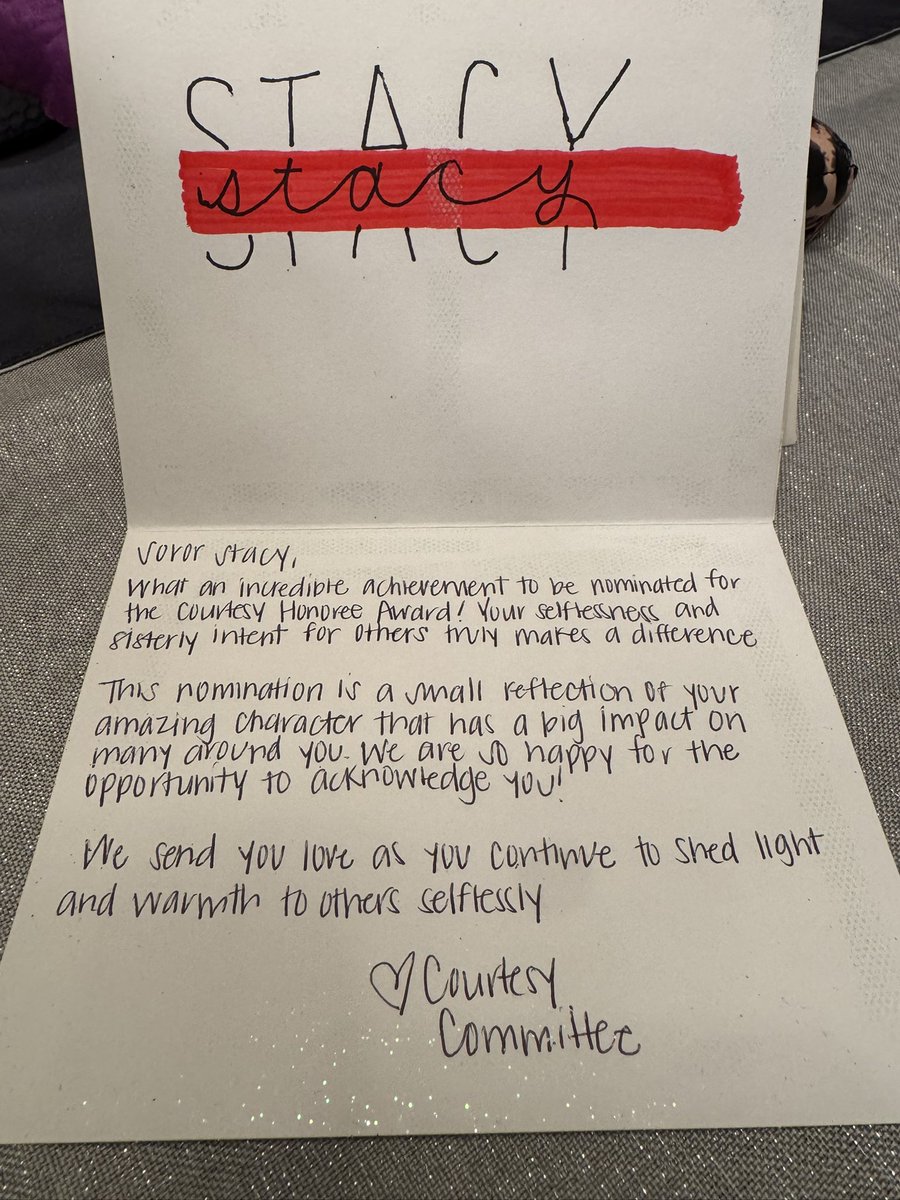 STACY
stacy
Soror Stacy,
What an incredible achievement to be nominated for
the Courtesy Honoree Award! Your selflessness and
sisterly intent for others truly makes a difference
This nomination is a small reflection of your
amazing character that has a big impact on
many around you. We are so happy for the
opportunity to acknowledge you!
We send you love as you continue to shed light
and warmth to others selflessly
♡ Courtesy
Committee